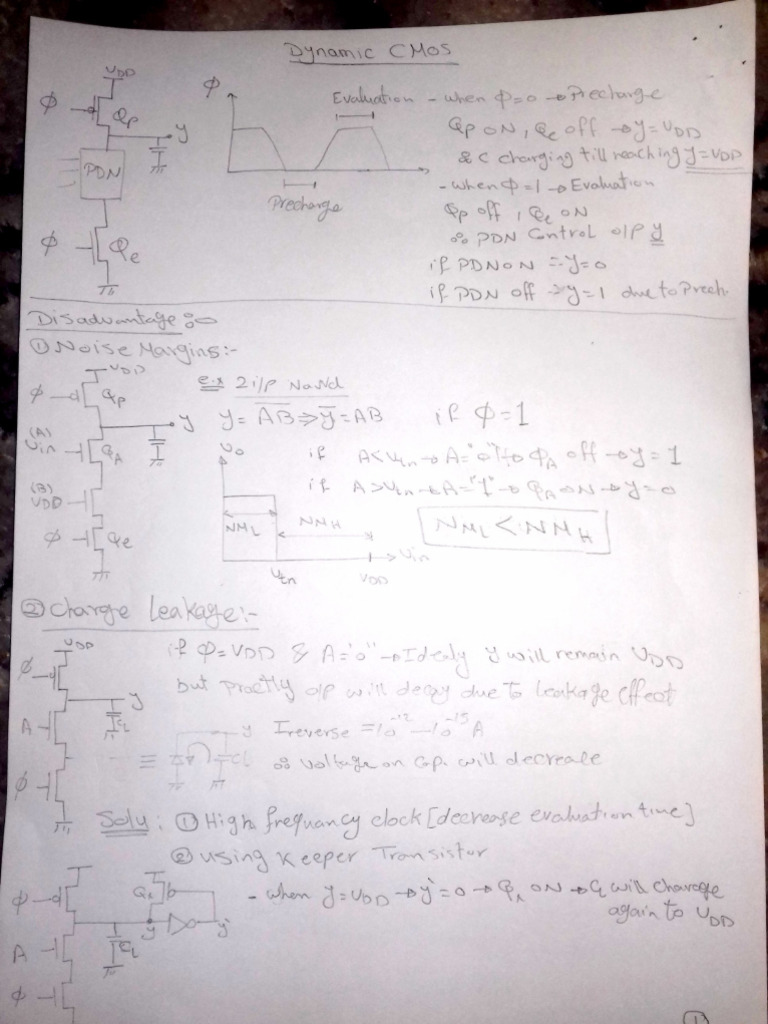 Dynamic CMOS
VDD
ϕ
Qp
y
PDN
ϕ
Qe
ϕ
Evaluation
Precharge
- when ϕ=0 → Precharge
Qp ON, Qe off → y=VDD
& C charging till reaching y=VDD
- when ϕ=1 → Evaluation
Qp off, Qe ON
∴ PDN Control o/p y
if PDN ON ∴ y=0
if PDN off → y=1 due to Prech.
Disadvantage :-
① Noise Margins:-
VDD
ϕ
Qp
y
(A)
Vin
QA
(B)
VDD
ϕ
Qe
e.x 2 i/p Nand
y = A̅B̅ ⇒ y̅ = AB if ϕ=1
if A<Vtn → A="0" → QA off → y=1
if A>Vtn → A="1" → QA ON → y=0
Vo
NML
NMH
Vtn
VDD
Vin
NML < NMH
② Charge Leakage:-
VDD
ϕ
y
CL
A
ϕ
if ϕ=VDD & A="0" → Idealy y will remain VDD
but Practly o/p will decay due to leakage effect
≡
y
CL
Ireverse = 10⁻¹² – 10⁻¹⁵ A
∴ voltage on Cap. will decrease
Solu: ① High frequancy clock [decrease evaluation time]
② using Keeper Transistor
ϕ
y
y'
CL
A
ϕ
- when y=VDD → y'=0 → ON → CL will charage
again to VDD
1